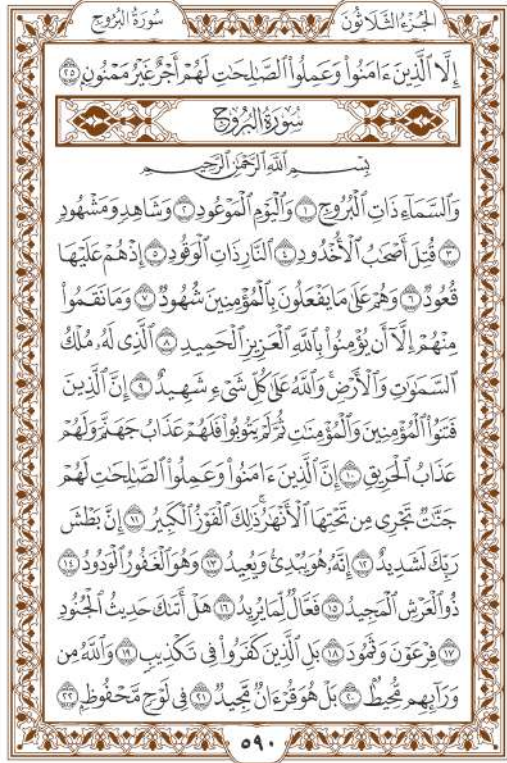 سُورَةُ البُرُوجِ الجُزْءُ الثَّلَاثُونَ
إِلَّا ٱلَّذِينَ ءَامَنُوا۟ وَعَمِلُوا۟ ٱلصَّـٰلِحَـٰتِ لَهُمْ أَجْرٌ غَيْرُ مَمْنُونٍۭ ٢٥
سُورَةُ البُرُوجِ
بِسْمِ ٱللَّهِ ٱلرَّحْمَـٰنِ ٱلرَّحِيمِ
وَٱلسَّمَآءِ ذَاتِ ٱلْبُرُوجِ ١ وَٱلْيَوْمِ ٱلْمَوْعُودِ ٢ وَشَاهِدٍ وَمَشْهُودٍ
٣ قُتِلَ أَصْحَـٰبُ ٱلْأُخْدُودِ ٤ ٱلنَّارِ ذَاتِ ٱلْوَقُودِ ٥ إِذْ هُمْ عَلَيْهَا
قُعُودٌ ٦ وَهُمْ عَلَىٰ مَا يَفْعَلُونَ بِٱلْمُؤْمِنِينَ شُهُودٌ ٧ وَمَا نَقَمُوا۟
مِنْهُمْ إِلَّآ أَن يُؤْمِنُوا۟ بِٱللَّهِ ٱلْعَزِيزِ ٱلْحَمِيدِ ٨ ٱلَّذِى لَهُۥ مُلْكُ
ٱلسَّمَـٰوَٰتِ وَٱلْأَرْضِ ۚ وَٱللَّهُ عَلَىٰ كُلِّ شَىْءٍ شَهِيدٌ ٩ إِنَّ ٱلَّذِينَ
فَتَنُوا۟ ٱلْمُؤْمِنِينَ وَٱلْمُؤْمِنَـٰتِ ثُمَّ لَمْ يَتُوبُوا۟ فَلَهُمْ عَذَابُ جَهَنَّمَ وَلَهُمْ
عَذَابُ ٱلْحَرِيقِ ١٠ إِنَّ ٱلَّذِينَ ءَامَنُوا۟ وَعَمِلُوا۟ ٱلصَّـٰلِحَـٰتِ لَهُمْ
جَنَّـٰتٌ تَجْرِى مِن تَحْتِهَا ٱلْأَنْهَـٰرُ ۚ ذَٰلِكَ ٱلْفَوْزُ ٱلْكَبِيرُ ١١ إِنَّ بَطْشَ
رَبِّكَ لَشَدِيدٌ ١٢ إِنَّهُۥ هُوَ يُبْدِئُ وَيُعِيدُ ١٣ وَهُوَ ٱلْغَفُورُ ٱلْوَدُودُ ١٤
ذُو ٱلْعَرْشِ ٱلْمَجِيدُ ١٥ فَعَّالٌ لِّمَا يُرِيدُ ١٦ هَلْ أَتَىٰكَ حَدِيثُ ٱلْجُنُودِ
١٧ فِرْعَوْنَ وَثَمُودَ ١٨ بَلِ ٱلَّذِينَ كَفَرُوا۟ فِى تَكْذِيبٍ ١٩ وَٱللَّهُ مِن
وَرَآئِهِم مُّحِيطٌۢ ٢٠ بَلْ هُوَ قُرْءَانٌ مَّجِيدٌ ٢١ فِى لَوْحٍ مَّحْفُوظٍۭ ٢٢
٥٩٠